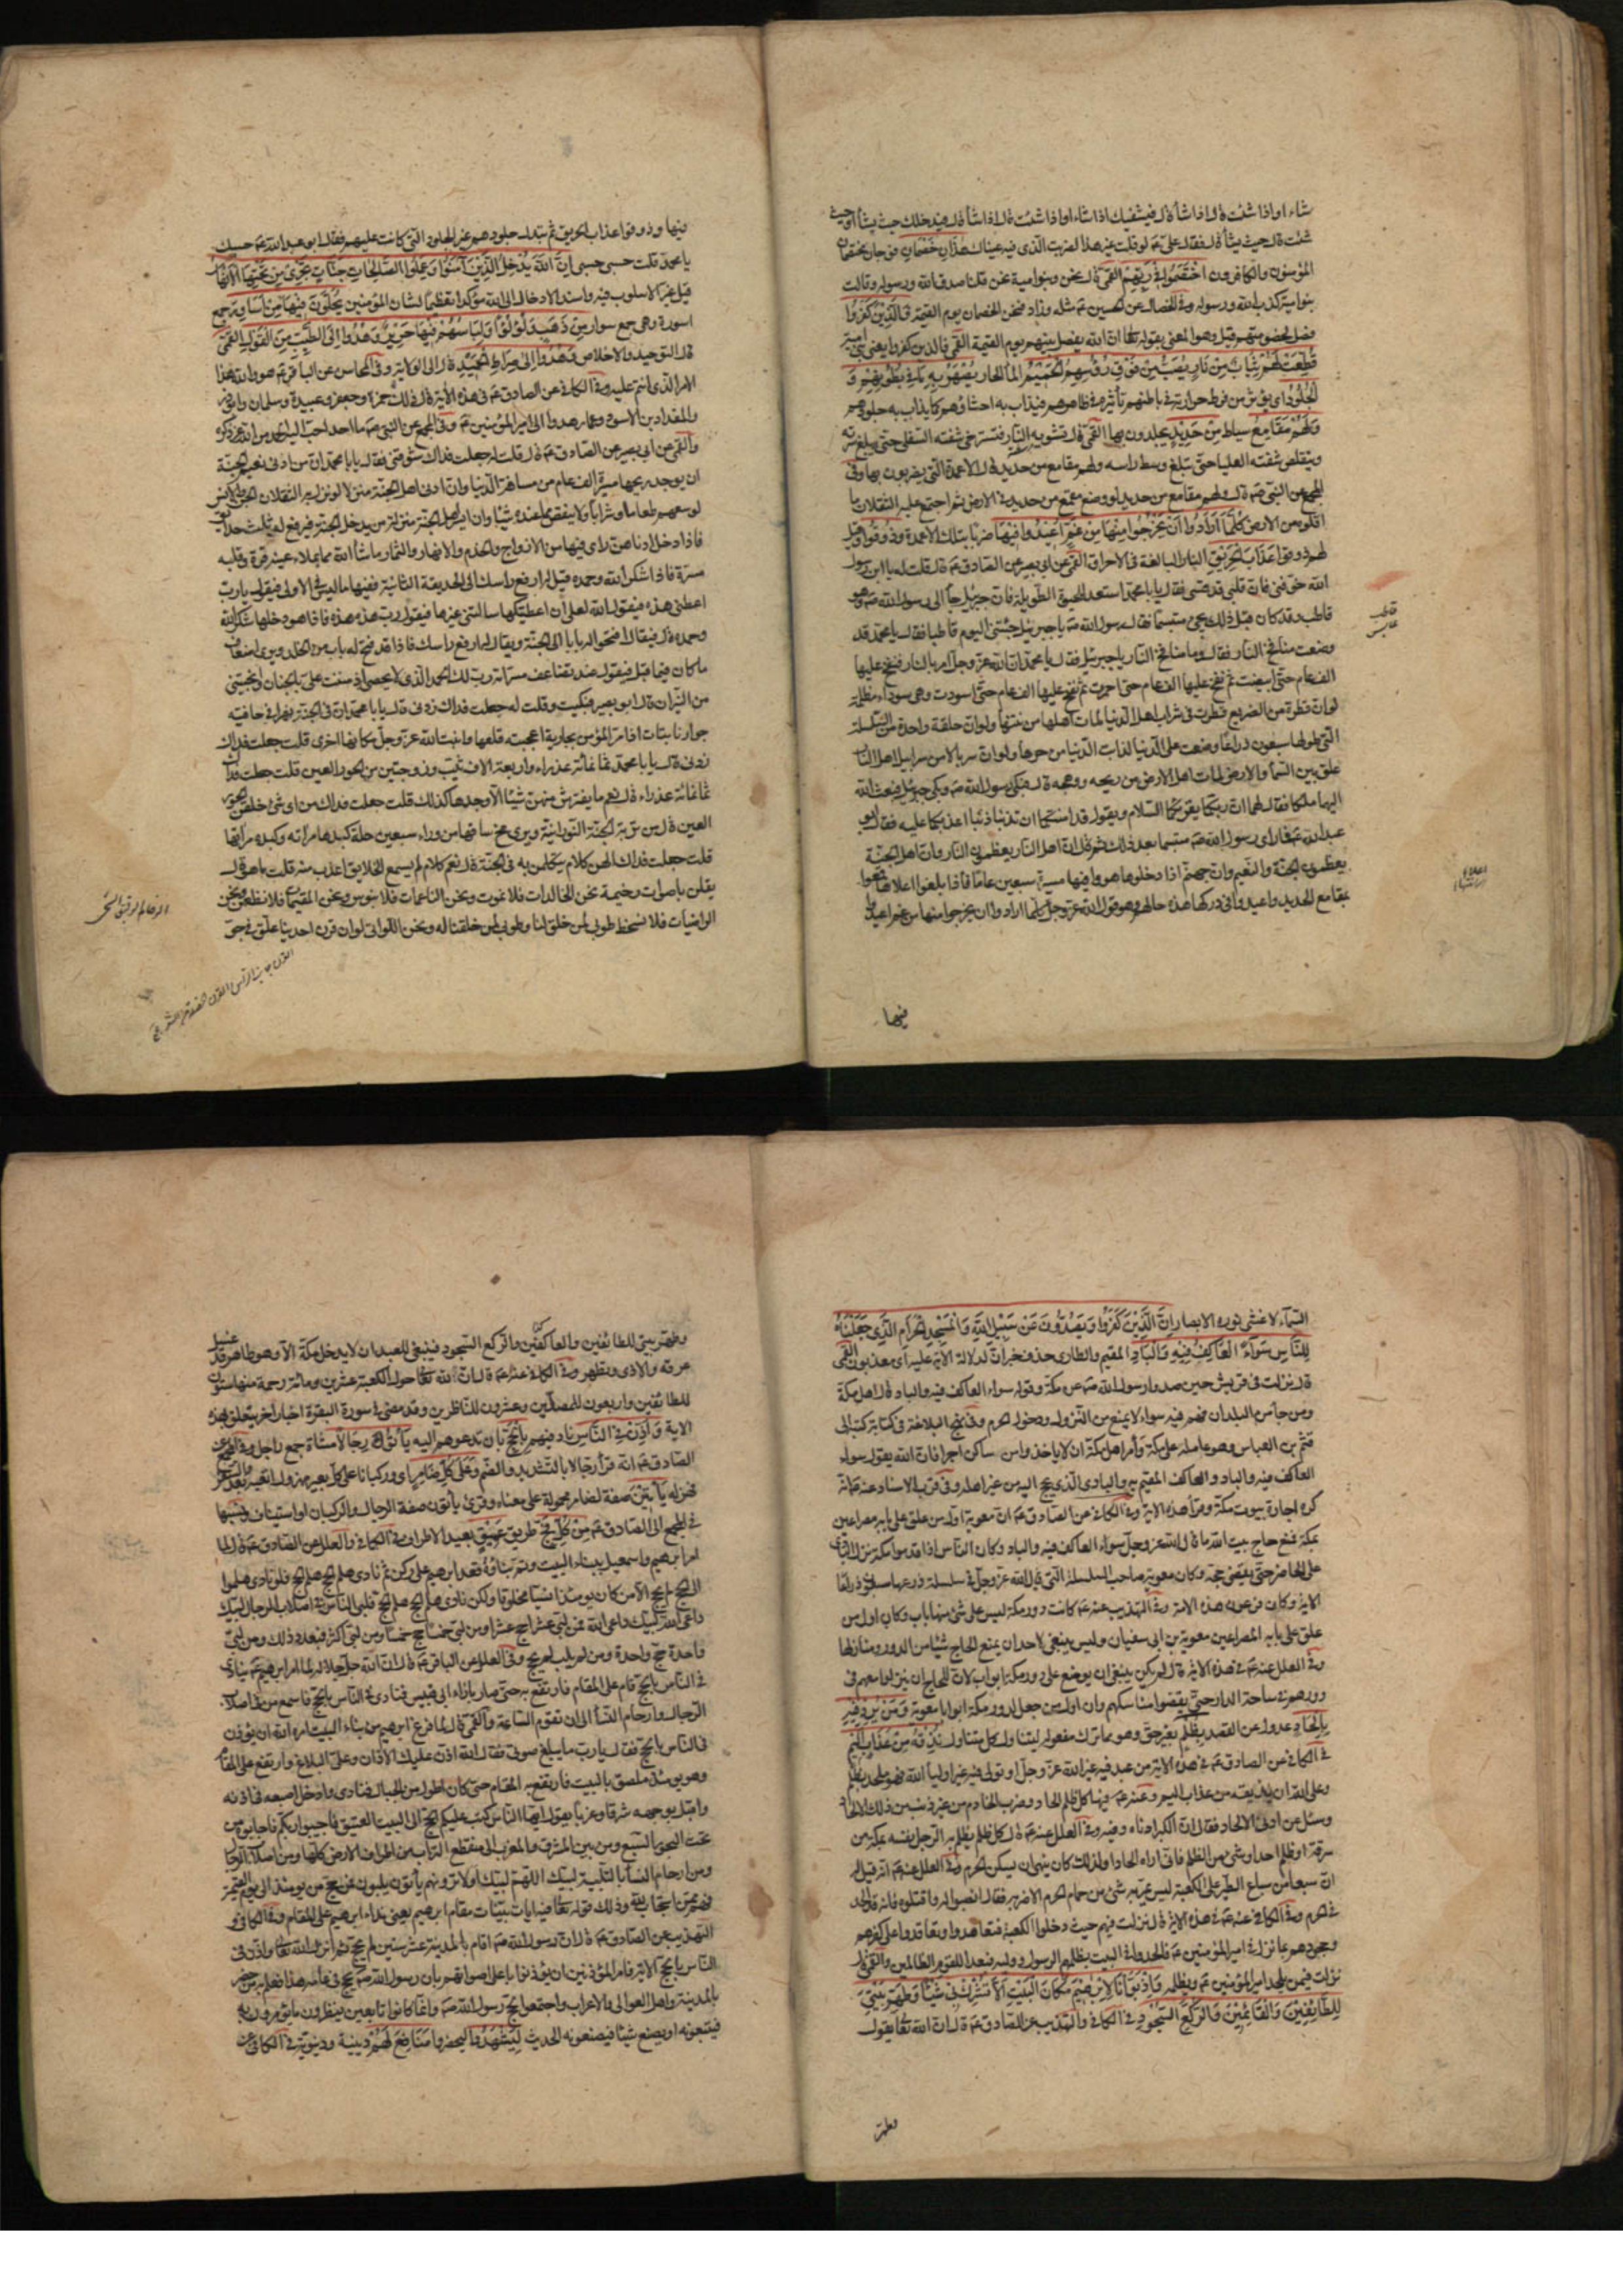 شاء او اذا شئت قال اذا شاء قال فيشفيك اذا شاء او اذا شئت قال اذا شاء قال فيدخلك حيث يشاء او حيث
شئت قال حيث يشاء قال فقال علي ع لو قلت غير هذا لضربت الذي فيه عيناك هذان خصمان فوجان مختصمان
المؤمنون والكافرون اختصموا في ربهم القمي قال نحن وبنو امية نحن قلنا صدق الله ورسوله وقالت
بنو امية كذب الله ورسوله وفي الخصال عن الحسين ع مثله وزاد فنحن الخصمان يوم القيمة فالذين كفروا
فصل لخصومتهم قيل وهو المعني بقوله تعالى ان الله يفصل بينهم يوم القيمة القمي فالذين كفروا يعني بني امية
قطعت لهم ثياب من نار يصب من فوق رؤسهم الحميم الماء الحار يصهر به ما في بطونهم و
الجلود اي يؤثر من فرط حرارته في باطنهم تأثيره في ظاهرهم فيذاب به احشاؤهم كما يذاب به جلودهم
ولهم مقامع سياط من حديد يجلدون بها القمي قال تشويه النار فتسترخي شفته السفلى حتى يبلغ سرته
ويتقلص شفته العليا حتى تبلغ وسط راسه ولهم مقامع من حديد قال الاعمدة التي يضربون بها وفي
المجمع عن النبي ص قال ولهم مقامع من حديد لو وضع مقمع من حديد في الارض ثم اجتمع عليه الثقلان ما
اقلوه من الارض كلما ارادوا ان يخرجوا منها من غم اعيدوا فيها ضربا بتلك الاعمدة وذوقوا وقيل
لهم ذوقوا عذاب الحريق النار البالغة في الاحراق القمي عن ابي بصير عن الصادق ع قال قلت له يا ابن رسول
الله خوفني فان قلبي قد قسى فقال يا با محمد استعد للحيوة الطويلة فان جبرئيل جاء الى رسول الله ص وهو
قاطب وقد كان قبل ذلك يجيء متبسما فقال رسول الله ص يا جبرئيل جئتني اليوم قاطبا فقال يا محمد قد
وضعت منافخ النار فقال وما منافخ النار يا جبرئيل فقال يا محمد ان الله عز وجل امر بالنار فنفخ عليها
الف عام حتى ابيضت ثم نفخ عليها الف عام حتى احمرت ثم نفخ عليها الف عام حتى اسودت فهي سوداء مظلمة
لو ان قطرة من الضريع قطرت في شراب اهل الدنيا لمات اهلها من نتنها ولو ان حلقة واحدة من السلسلة
التي طولها سبعون ذراعا وضعت على الدنيا لذابت الدنيا من حرها ولو ان سربالا من سرابيل اهل النار
علق بين السماء والارض لمات اهل الارض من ريحه ووهجه قال فبكى رسول الله ص وبكى جبرئيل فبعث الله
اليهما ملكا فقال لهما ان ربكما يقرئكما السلام ويقول قد امنتكما ان تذنبا ذنبا اعذبكما عليه فقال ابو
عبد الله ع فما راى رسول الله ص متبسما بعد ذلك ثم قال ان اهل النار يعظمون النار وان اهل الجنة
يعظمون الجنة والنعيم وان جهنم اذا دخلوها هووا فيها مسيرة سبعين عاما فاذا بلغوا اعلاها قمعوا
بمقامع الحديد واعيدوا في دركها هذه حالهم وهو قول الله عز وجل كلما ارادوا ان يخرجوا منها من غم اعيدوا
قاطب
عابس
فيها
فيها وذوقوا عذاب الحريق ثم تبدل جلودهم غير الجلود التي كانت عليهم فقال ابو عبد الله ع حسبك
يا محمد قلت حسبي حسبي ان الله يدخل الذين آمنوا وعملوا الصالحات جنات تجري من تحتها الانهار
قيل غير الاسلوب فيه واسند الادخال الى الله مؤكدا تعظيما لشان المؤمنين يحلون فيها من اساور جمع
اسورة وهي جمع سوار من ذهب ولؤلؤا ولباسهم فيها حرير وهدوا الى الطيب من القول القمي
قال التوحيد والاخلاص وهدوا الى صراط الحميد قال الى الولاية وفي المحاسن عن الباقر ع هو والله هذا
الامر الذي انتم عليه وفي الكافي عن الصادق ع في هذه الاية قال ذلك حمزة وجعفر وعبيدة وسلمان وابوذر
والمقداد بن الاسود وعمار هدوا الى امير المؤمنين ع وفي المجمع عن النبي ص ما احد احب اليه الحمد من الله عز ذكره
والقمي عن ابي بصير عن الصادق ع قال قلت له جعلت فداك شوقني فقال يا با محمد ان من ادنى نعيم الجنة
ان يوجد ريحها من مسيرة الف عام من مسافة الدنيا وان ادنى اهل الجنة منزلا لو نزل به الثقلان الجن والانس
لوسعهم طعاما وشرابا ولا ينقص مما عنده شيئا وان ايسر اهل الجنة منزلة من يدخل الجنة فيرفع له ثلث حدائق
فاذا دخل ادناهن راى فيها من الازواج والخدم والانهار والثمار ما شاء الله مما يملاء عينه قرة وقلبه
مسرة فاذا شكر الله وحمده قيل له ارفع راسك الى الحديقة الثانية ففيها ما ليس في الاولى فيقول يا رب
اعطني هذه فيقول الله لعلي ان اعطيتكها سالتني غيرها فيقول رب هذه هذه فاذا هو دخلها شكر الله
وحمده قال فيقال افتحوا له بابا الى الجنة ويقال له ارفع راسك فاذا قد فتح له باب من الخلد ويرى اضعاف
ما كان فيما قبل فيقول عند تضاعف مسراته رب لك الحمد الذي لا يحصى اذ مننت علي بالجنان ونجيتني
من النيران قال ابو بصير فبكيت وقلت له جعلت فداك زدني قال يا با محمد ان في الجنة نهرا في حافتيه
جوار نابتات اذا مر المؤمن بجارية اعجبته قلعها وانبت الله عز وجل مكانها اخرى قلت جعلت فداك
زدني قال يا با محمد ثمانمائة عذراء واربعة الاف ثيب وزوجتين من الحور العين قلت جعلت فداك
ثمانمائة عذراء قال نعم ما يفترش منهن شيئا الا وجدها كذلك قلت جعلت فداك من اي شيء خلقن الحور
العين قال من تربة الجنة النورانية ويرى مخ ساقيها من وراء سبعين حلة كبدها مرآته وكبده مرآتها
قلت جعلت فداك الهن كلام يتكلمن به في الجنة قال نعم كلام لم يسمع الخلايق اعذب منه قلت ما هو قال
يقلن باصوات رخيمة نحن الخالدات فلا نموت ونحن الناعمات فلا نبؤس ونحن المقيمات فلا نظعن ونحن
الراضيات فلا نسخط طوبى لمن خلق لنا وطوبى لمن خلقنا له ونحن اللواتي لو ان قرن احدينا علق في جو
السماء لاغشى نوره الابصار ان الذين كفروا ويصدون عن سبيل الله والمسجد الحرام الذي جعلناه
للناس سواء العاكف فيه والباد المقيم والطاري حذف خبر ان لدلالة الاية عليه اي معذبون القمي
قال نزلت في قريش حين صدوا رسول الله ص عن مكة وقوله سواء العاكف فيه والباد قال اهل مكة
ومن جاء من البلدان فهم فيه سواء لا يمنع من النزول ودخول الحرم وفي نهج البلاغة في كتاب كتبه الى
قثم بن العباس وهو عامله على مكة وأمر اهل مكة ان لا ياخذوا من ساكن اجرا فان الله يقول سواء
العاكف فيه والباد والعاكف المقيم به والبادي الذي يحج اليه من غير اهله وفي قرب الاسناد عنه ع انه
كره اجارة بيوت مكة وقرأ هذه الاية وفي الكافي عن الصادق ع ان معوية اول من علق على بابه مصراعين
بمكة فمنع حاج بيت الله ما قال الله عز وجل سواء العاكف فيه والباد وكان الناس اذا قدموا مكة نزل البادي
على الحاضر حتى يقضي حجه وكان معوية صاحب السلسلة التي قال الله عز وجل في سلسلة ذرعها سبعون ذراعا
الاية وكان فرعون هذه الامة وفي التهذيب عنه ع كانت دور مكة ليس على شيء منها باب وكان اول من
علق على بابه المصراعين معوية بن ابي سفيان وليس ينبغي لاحد ان يمنع الحاج شيئا من الدور ومنازلها
وفي العلل عنه ع في هذه الاية قال لم يكن ينبغي ان يوضع على دور مكة ابواب لان للحاج ان ينزلوا معهم في
دورهم في ساحة الدار حتى يقضوا مناسكهم وان اول من جعل لدور مكة ابوابا معوية ومن يرد فيه
بالحاد عدول عن القصد بظلم بغير حق وهو مما ترك مفعوله ليتناول كل متناول نذقه من عذاب اليم
في الكافي عن الصادق ع في هذه الاية من عبد فيه غير الله عز وجل او تولى فيه غير اولياء الله فهو ملحد بظلم
وعلى الله ان يذيقه من عذاب اليم وعنه ع فيها كل ظلم الحاد وضرب الخادم من غير ذنب من ذلك الالحاد
وسئل عن ادنى الالحاد فقال ان الكبر ادناه وفيه وفي العلل عنه ع قال كل ظلم يظلم به الرجل نفسه بمكة من
سرقة او ظلم احد او شيء من الظلم فاني اراه الحادا ولذلك كان ينهى ان يسكن الحرم وفي العلل عنه ع انه قيل له
ان سبعا من سباع الطير على الكعبة ليس يمر به شيء من حمام الحرم الا ضربه فقال انصبوا له واقتلوه فانه قد الحد
في الحرم وفي الكافي عنه ع في هذه الاية قال نزلت فيهم حيث دخلوا الكعبة فتعاهدوا وتعاقدوا على كفرهم
وجحودهم بما نزل في امير المؤمنين ع فالحدوا في البيت بظلمهم الرسول ووليه فبعدا للقوم الظالمين والقمي قال
نزلت فيمن يلحد امير المؤمنين ع ويظلمه واذ بوأنا لابرهيم مكان البيت الا تشرك بي شيئا وطهر بيتي
للطائفين والقائمين والركع السجود في الكافي والتهذيب عن الصادق ع قال ان الله تعالى يقول
وطهر
وطهر بيتي للطائفين والعاكفين والركع السجود فينبغي للعبد ان لا يدخل مكة الا وهو طاهر قد غسل
عرقه والاذى وتطهر وفي الكافي عنه ع قال ان الله تعالى حول الكعبة عشرين ومائة رحمة منها ستون
للطائفين واربعون للمصلين وعشرون للناظرين وقد مضى في سورة البقرة اخبار اخر يتعلق بهذه
الاية واذن في الناس ناد فيهم بالحج بان تدعوهم اليه يأتوك رجالا مشاة جمع راجل وفي المجمع عن
الصادق ع انه قرأ رجالا بالتشديد والضم وعلى كل ضامر اي وركبانا على كل بعير مهزول اتعبه بعد السفر
فهزله يأتين صفة لضامر محمولة على معناه وقرئ يأتون صفة الرجال والركبان او استيناف ونسبها
في المجمع الى الصادق ع من كل فج طريق عميق بعيد الاطراف في الكافي والعلل عن الصادق ع قال لما
امر ابرهيم واسمعيل ببناء البيت وتم بناؤه قعد ابرهيم على ركن ثم نادى هلم الحج هلم الحج فلو نادى هلموا
الى الحج لم يحج الا من كان يومئذ انسيا مخلوقا ولكن نادى هلم الحج هلم الحج فلبى الناس في اصلاب الرجال لبيك
داعي الله لبيك داعي الله فمن لبى عشرا حج عشرا ومن لبى خمسا حج خمسا ومن لبى اكثر فبعدد ذلك ومن لبى
واحدة حج واحدة ومن لم يلب لم يحج وفي العلل عن الباقر ع قال ان الله جل جلاله لما امر ابرهيم ع ينادي
في الناس بالحج قام على المقام فارتفع به حتى صار بازاء ابي قبيس فنادى في الناس بالحج فاسمع من في اصلاب
الرجال وارحام النساء الى ان تقوم الساعة والقمي قال لما فرغ ابرهيم من بناء البيت امره الله ان يؤذن
في الناس بالحج فقال يا رب ما يبلغ صوتي فقال الله اذن عليك الاذان وعلي البلاغ وارتفع على المقام
وهو يومئذ ملصق بالبيت فارتفع به المقام حتى كان اطول من الجبال فنادى وادخل اصبعه في اذنه
واقبل بوجهه شرقا وغربا يقول ايها الناس كتب عليكم الحج الى البيت العتيق فاجيبوا ربكم فاجابوه من
تحت البحور السبع ومن بين المشرق والمغرب الى منقطع التراب من اطراف الارض كلها ومن اصلاب الرجال
ومن ارحام النساء بالتلبية لبيك اللهم لبيك اولا ترونهم يأتون يلبون فمن حج من يومئذ الى يوم القيمة
فهم ممن استجاب الله وذلك قوله تعالى فيه ايات بينات مقام ابرهيم يعني نداء ابرهيم على المقام وفي الكافي و
التهذيب عن الصادق ع قال ان رسول الله ص اقام بالمدينة عشر سنين لم يحج ثم انزل الله تعالى واذن في
الناس بالحج الاية فامر المؤذنين ان يؤذنوا باعلى اصواتهم بان رسول الله ص يحج في عامه هذا فعلم به من حضر
بالمدينة واهل العوالي والاعراب واجتمعوا لحج رسول الله ص وانما كانوا تابعين ينظرون ما يؤمرون به
فيتبعونه او يصنع شيئا فيصنعونه الحديث ليشهدوا ليحضروا منافع لهم دينية ودنيوية في الكافي عن